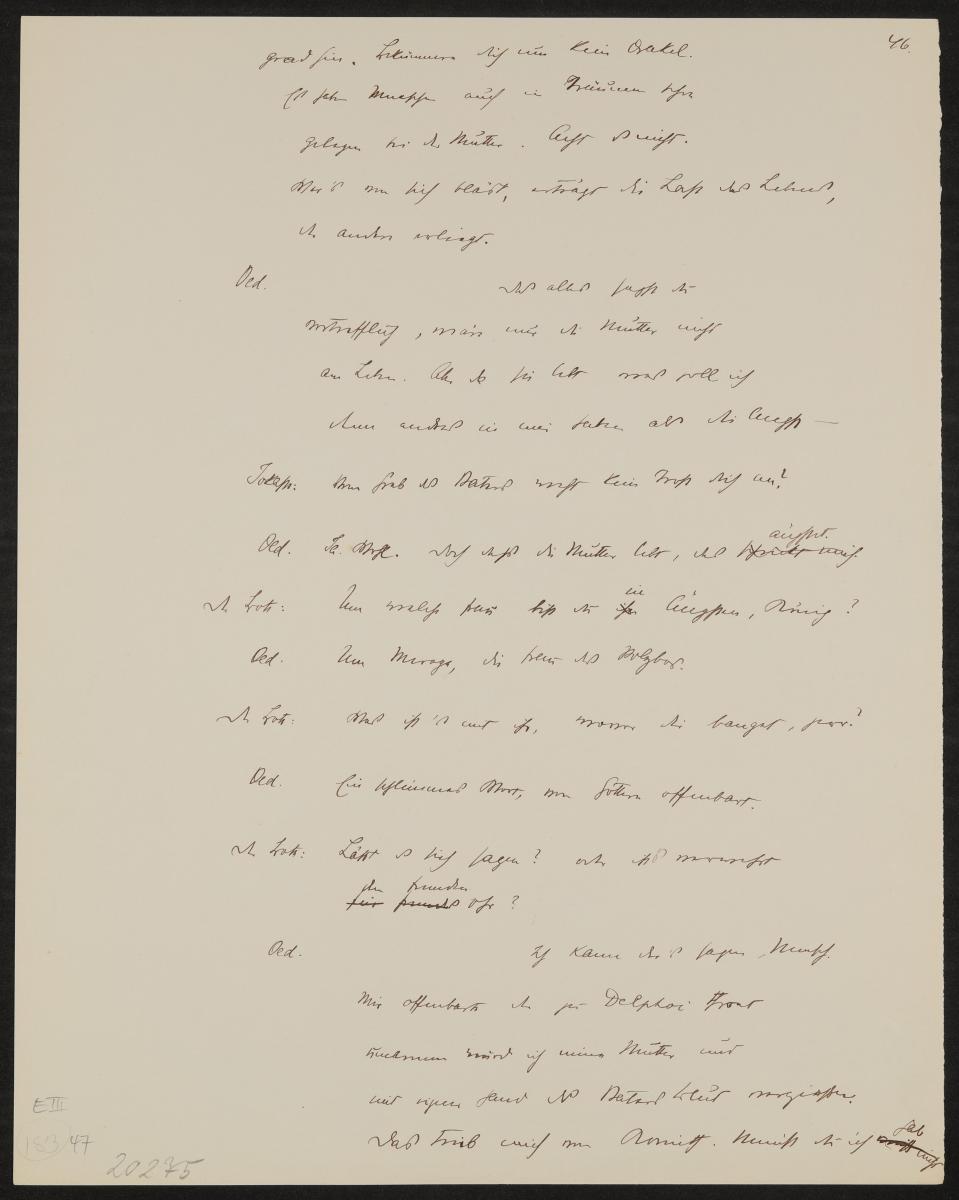 46.
grad hin. Bekümmere dich um kein Orakel.
Es haben Menschen auch in Träumen schon
gelegen bei der Mutter. Acht es nicht.
Wer's von sich bläst, erträgt die Last des Lebens,
der andere erliegt.
Oed. Das alles sagst du
vortrefflich, wäre nur die Mutter nicht
am Leben. Aber da sie lebt was soll ich
denn anders in mir haben als die Angst —
Jokaste: Vom Grab des Vaters weht kein Trost dich an?
Oed. Ja. Wohl. Doch dass die Mutter lebt, das ängstet.
Der Bote: Um welche Frau bist du in Ängsten, König?
Oed. Um Merope, die Frau des Polybos.
Der Bote: Was ist's mit ihr, wovor dir banget, Herr?
Oed. Ein schlimmes Wort, von Göttern offenbart.
Der Bote: Lässt es sich sagen? oder ist's verwehrt
dem fremden
Ohr?
Oed. Ich kann dir's sagen, Mensch.
Mir offenbarte der zu Delphoi thront
umarmen würd ich meine Mutter und
mit eigner Hand des Vaters Blut vergiessen.
Das trieb mich von Korinth. Meinst du ich hab
E III
183/47
20275